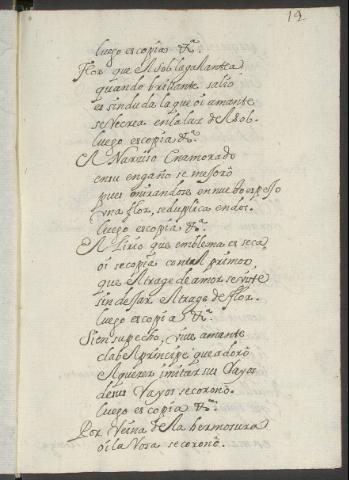 12
luego es copia &ª.
Flor que Al sol la galantea
quando brillante salio
es sinduda la que oi amante
se recrea en la luz de Al sol.
luego es copia &ª.
Al Narciso Enamorado
en su engaño se mejorò
pues mirandose en nuebo espejo
una flor, se duplica en dos.
luego es copia &ª.
Al Lirio que emblema es
oi se copia con tal primor
que Al trage de amor se viste
sin dejar Al trage de flor.
luego es copia &ª.
Si en su pecho, vive amante
Al Principe que adorò
A querer imitar sus rayos
de sus rayos se coronò.
luego es copia &ª.
Por Reina de la hermosura
oi la Rosa se coronò.